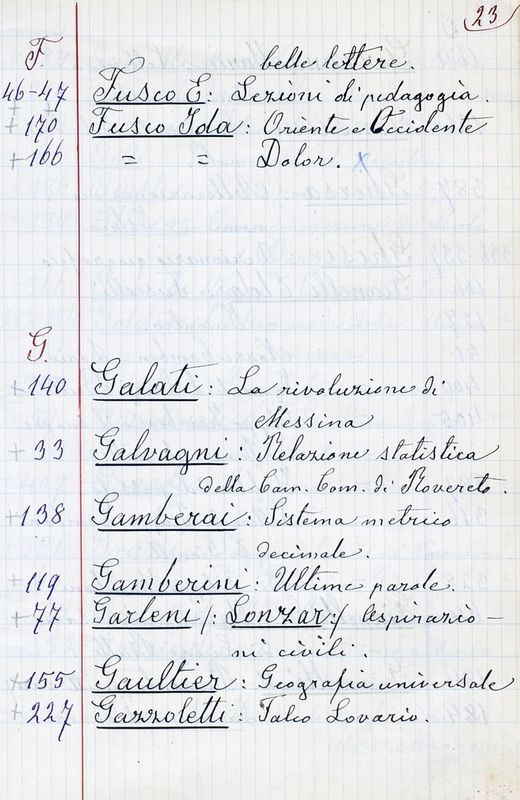 23
F. belle lettere.
46-47 Fusco E: Lezioni di pedagogia.
+ 170 Fusco Ida: Oriente e Occidente
+ 166 = = Dolor. x
G.
+ 140 Galati: La rivoluzione di
Messina
+ 33 Galvagni: Relazione statistica
della Cam. Com. di Rovereto.
+ 138 Gamberai: Sistema metrico
decimale.
119 Gamberini: Ultime parole.
+ 77 Garleni /: Lonzar :/ Aspirazio-
ni civili.
+ 155 Gaultier: Geografia universale
+ 227 Gazzoletti: Falco Lovario.